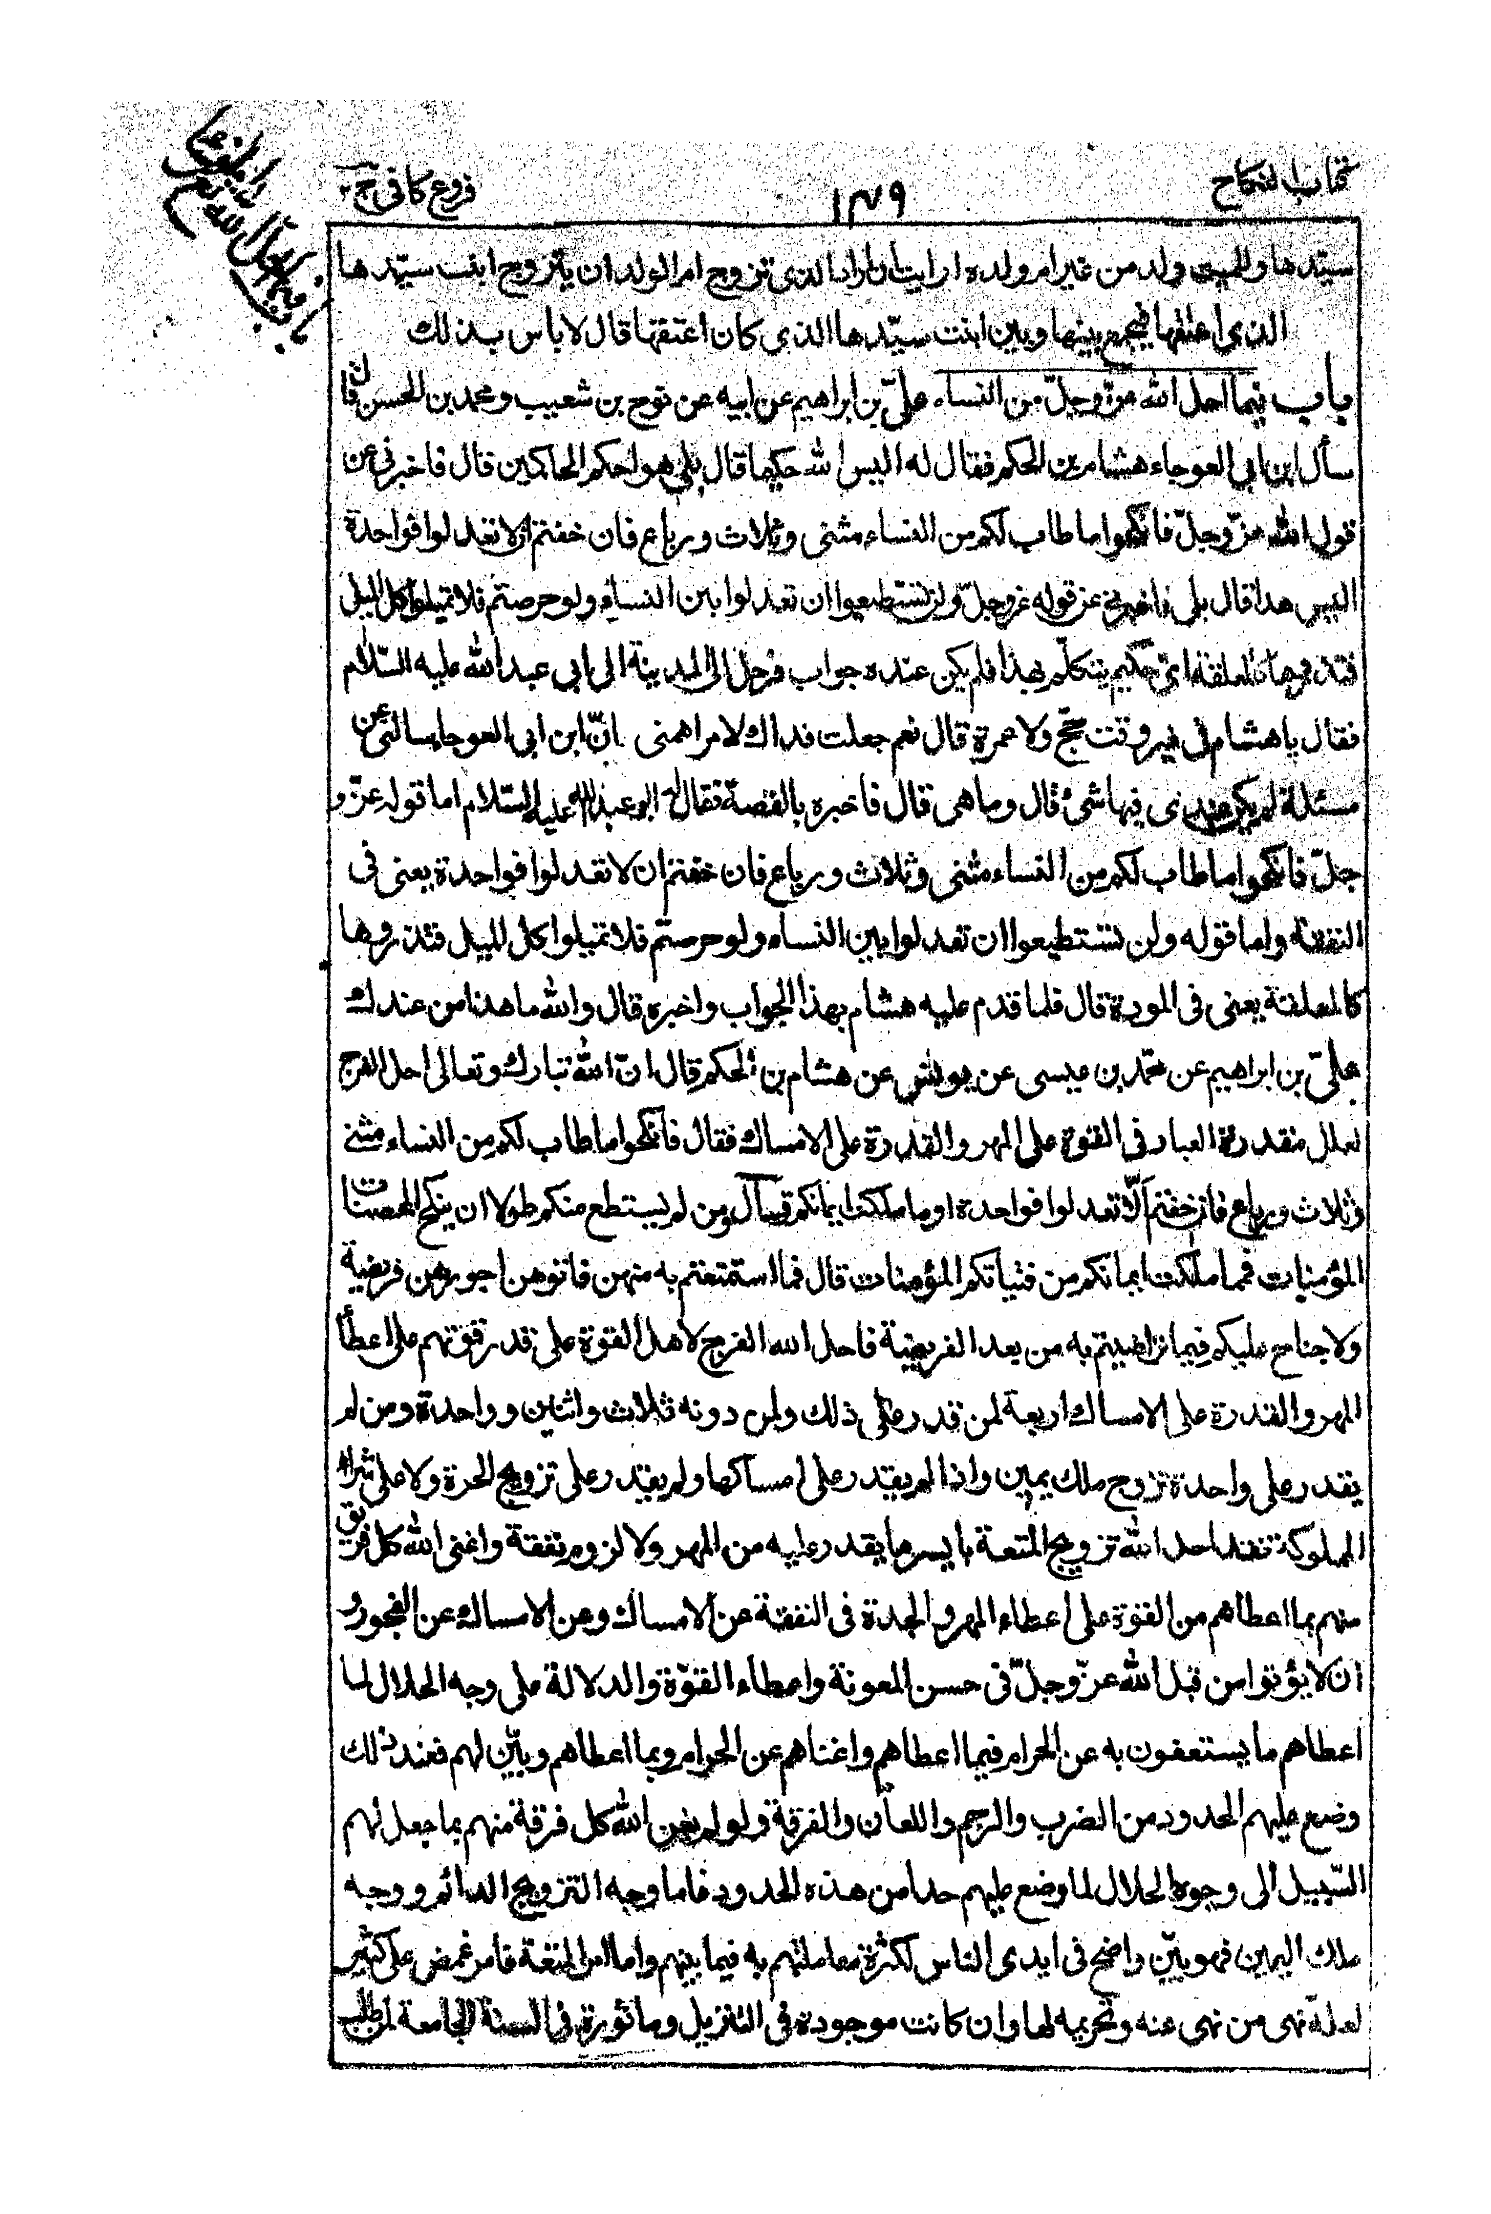 كتاب النكاح
١٣٧٩
فروع كافى ج ٢
باب فيما احل الله تعالى
سيّدها وللميت ولد من غير ام ولده ارايت ان اراد الذى تزوج ام الولد ان يتزوج ابنت سيّدها
الذى اعتقها فيجمع بينها وبين ابنت سيّدها الذى كان اعتقها قال لا باس بذلك
باب فيما احل الله عزّ وجلّ من النساء علىّ بن ابراهيم عن ابيه عن نوح بن شعيب ومحمد بن الحسن قال
سأل ابن ابى العوجاء هشام بن الحكم فقال له اليس الله حكيما قال بلى هو احكم الحاكمين قال فاخبرنى عن
قول الله عزّ وجلّ فانكحوا ما طاب لكم من النساء مثنى وثلاث ورباع فان خفتم ان لا تعدلوا فواحدة
اليس هذا قال بلى فاخبرنى عن قوله عز وجلّ ولن تستطيعوا ان تعدلوا بين النساء ولو حرصتم فلا تميلوا كل الميل
فتذروها كالمعلقة اىّ حكيم يتكلّم بهذا فلم يكن عنده جواب فرحل الى المدينة الى ابى عبد الله عليه السّلام
فقال يا هشام فى غير وقت حجّ ولا عمرة قال نعم جعلت فداك لامر اهمنى انّ ابن ابى العوجا سالنى عن
مسئلة لم يكن عندى فيها شئ قال وما هى قال فاخبره بالقصة فقال له ابو عبد الله عليه السّلام اما قوله عزّ و
جلّ فانكحوا ما طاب لكم من النساء مثنى وثلاث ورباع فان خفتم ان لا تعدلوا فواحدة يعنى فى
النفقة واما قوله ولن تستطيعوا ان تعدلوا بين النساء ولو حرصتم فلا تميلوا كل الميل فتذروها
كالمعلقة يعنى فى المودة قال فلما قدم عليه هشام بهذا الجواب واخبره قال والله ما هذا من عندك
علىّ بن ابراهيم عن محمّد بن عيسى عن يونس عن هشام بن الحكم قال انّ الله تبارك وتعالى احل الفرج
لعلل مقدرة العباد فى القوة على المهر والقدرة على الامساك فقال فانكحوا ما طاب لكم من النساء مثنى
وثلاث ورباع فان خفتم الّا تعدلوا فواحدة او ما ملكت ايمانكم وقال ومن لم يستطع منكم طولا ان ينكح المحصنات
المؤمنات فمما ملكت ايمانكم من فتياتكم المؤمنات قال فما استمتعتم به منهن فاتوهن اجورهن فريضة
ولا جناح عليكم فيما تراضيتم به من بعد الفريضة فاحل الله الفرج لاهل القوة على قدر قوتهم على اعطاء
المهر والقدرة على الامساك اربعة لمن قدر على ذلك ولمن دونه ثلاث واثنين وواحدة ومن لم
يقدر على واحدة تزوج ملك يمين واذا لم يقدر على امساكها ولم يقدر على تزويج الحرة ولا على شراء
المملوكة فقد احل الله تزويج المتعة بايسر ما يقدر عليه من المهر ولا لزوم نفقة واغنى الله كل فريق
منهم بما اعطاهم من القوة على اعطاء المهر والجدة فى النفقة عن الامساك وعن الامساك عن الفجور و
ان لا يؤتوا من قبل الله عزّ وجلّ فى حسن المعونة واعطاء القوّة والدلالة على وجه الحلال لما
اعطاهم ما يستعفون به عن الحرام فيما اعطاهم واغناهم عن الحرام وبما اعطاهم وبيّن لهم فعند ذلك
وضع عليهم الحدود من الضرب والرجم واللعان والفرقة ولو لم يغن الله كل فرقة منهم بما جعل لهم
السّبيل الى وجوه الحلال لما وضع عليهم حدا من هذه الحدود فاما وجه التزويج الدائم ووجه
ملك اليمين فهو بيّن واضح فى ايدى الناس لكثرة معاملتهم به فيما بينهم واما امر المتعة فامر غمض على كثير
لعلة نهى من نهى عنه وتحريمه لها وان كانت موجودة فى التنزيل وماثورة فى السنة الجامعة لمن طلب